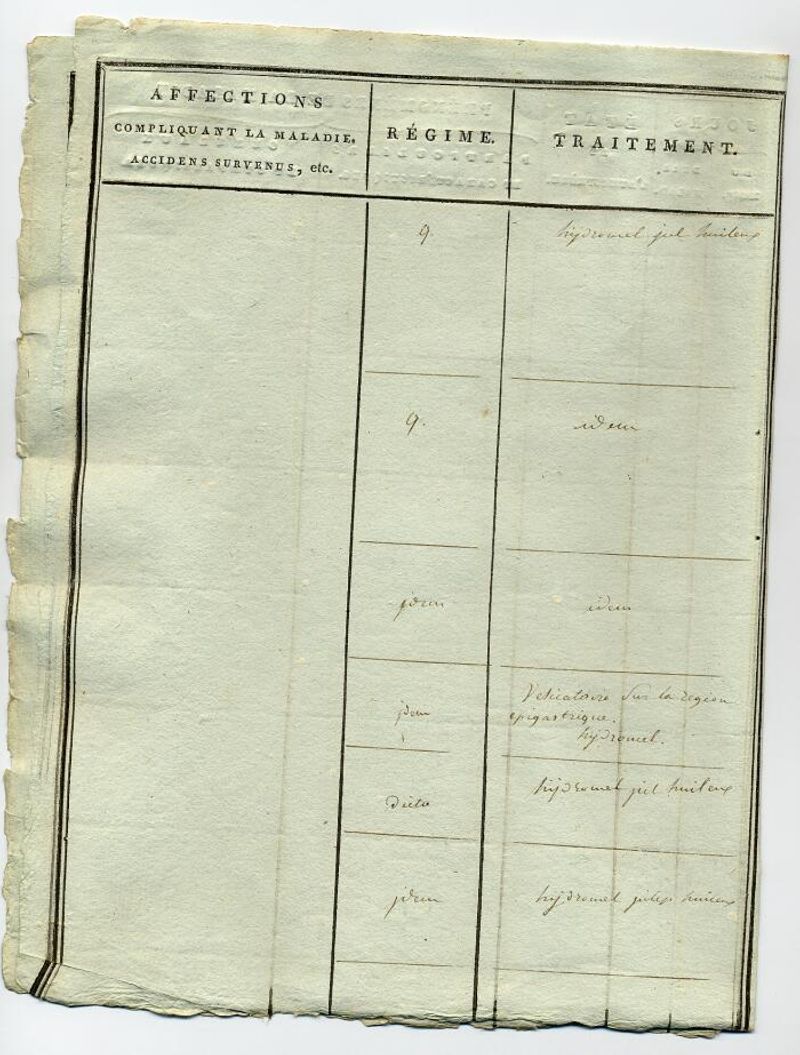 AFFECTIONS
COMPLIQUANT LA MALADIE,
ACCIDENS SURVENUS, etc.
RÉGIME.
TRAITEMENT.
9.
hydromel jul huileux
9.
idem
jdem
idem
jdem
Vesicatoire sur la region
epigastrique.
hydromel.
diete
hydromel jul huileux
jdem
hydromel julep huileux